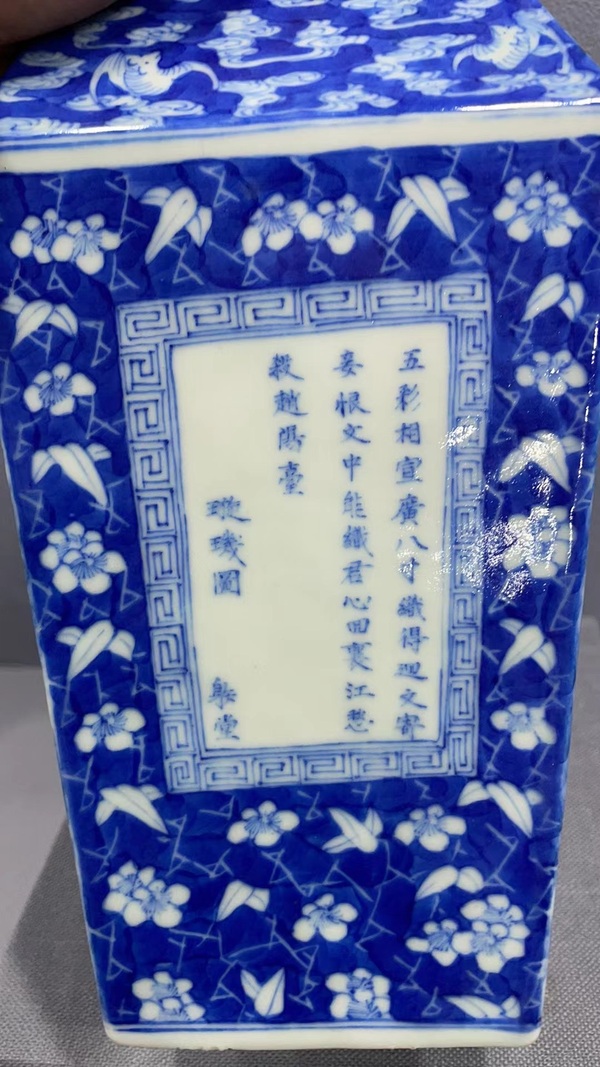 五彩相宣廣八寸織得迴文寄
妾恨文中能織君心回襄江愁
殺越陽臺
璇璣圖
躲堂